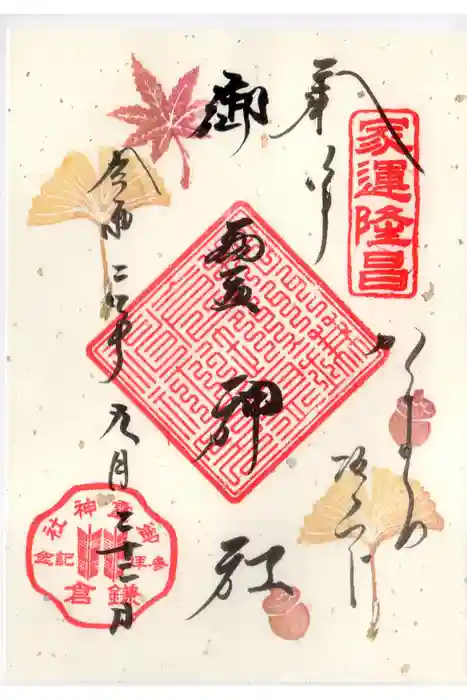 奉拝
家運隆昌
かまくら
坂ノ下
御霊神社
令和二年九月二十二日
御霊神社
参拝記念
鎌倉